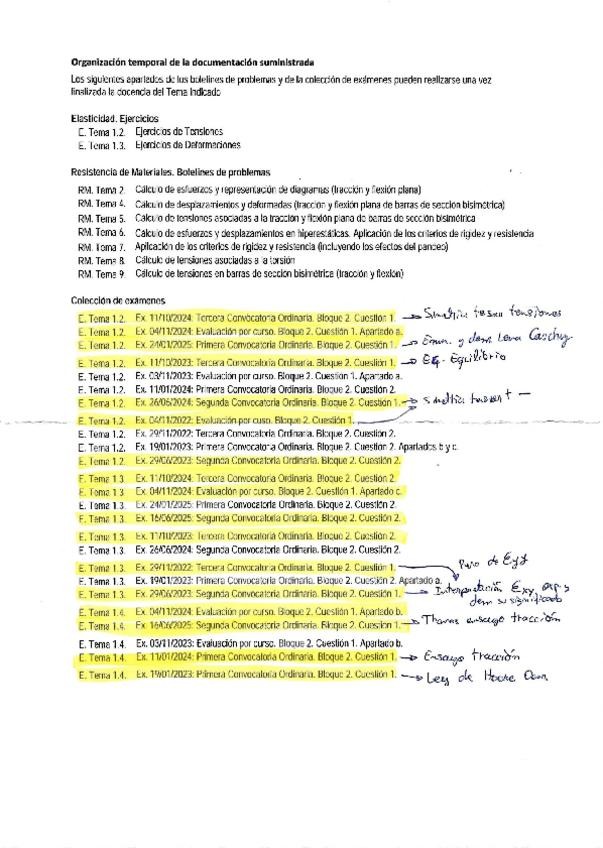 Organización temporal de la documentación suministrada
Los siguientes apartados de los boletines de problemas y de la colección de exámenes pueden realizarse una vez
finalizada la docencia del Tema indicado
Elasticidad. Ejercicios
E. Tema 1.2. Ejercicios de Tensiones
E. Tema 1.3. Ejercicios de Deformaciones
Resistencia de Materiales. Boletines de problemas
RM. Tema 2. Cálculo de esfuerzos y representación de diagramas (tracción y flexión plana)
RM. Tema 4. Cálculo de desplazamientos y deformadas (tracción y flexión plana de barras de sección bisimétrica)
RM. Tema 5. Cálculo de tensiones asociadas a la tracción y flexión plana de barras de sección bisimétrica
RM. Tema 6. Cálculo de esfuerzos y desplazamientos en hiperestáticas. Aplicación de los criterios de rigidez y resistencia
RM. Tema 7. Aplicación de los criterios de rigidez y resistencia (incluyendo los efectos del pandeo)
RM. Tema 8. Cálculo de tensiones asociadas a la torsión
RM. Tema 9. Cálculo de tensiones en barras de sección bisimétrica (tracción y flexión)
Colección de exámenes
E. Tema 1.2. Ex. 11/10/2024: Tercera Convocatoria Ordinaria. Bloque 2. Cuestión 1. → Simetría tensor tensiones
E. Tema 1.2. Ex. 04/11/2024: Evaluación por curso. Bloque 2. Cuestión 1. Apartado a.
E. Tema 1.2. Ex. 24/01/2025: Primera Convocatoria Ordinaria. Bloque 2. Cuestión 1. → Enun. y dem Lema Cauchy
E. Tema 1.2. Ex. 11/10/2023: Tercera Convocatoria Ordinaria. Bloque 2. Cuestión 1. → Eq. Equilibrio
E. Tema 1.2. Ex. 03/11/2023: Evaluación por curso. Bloque 2. Cuestión 1. Apartado a.
E. Tema 1.2. Ex. 11/01/2024: Primera Convocatoria Ordinaria. Bloque 2. Cuestión 2.
E. Tema 1.2. Ex. 26/06/2024: Segunda Convocatoria Ordinaria. Bloque 2. Cuestión 1. → Simetría tensor t
E. Tema 1.2. Ex. 04/11/2022: Evaluación por curso. Bloque 2. Cuestión 1.
E. Tema 1.2. Ex. 29/11/2022: Tercera Convocatoria Ordinaria. Bloque 2. Cuestión 2.
E. Tema 1.2. Ex. 19/01/2023: Primera Convocatoria Ordinaria. Bloque 2. Cuestión 2. Apartados b y c.
E. Tema 1.2. Ex. 29/06/2023: Segunda Convocatoria Ordinaria. Bloque 2. Cuestión 2.
E. Tema 1.3. Ex. 11/10/2024: Tercera Convocatoria Ordinaria. Bloque 2. Cuestión 2.
E. Tema 1.3 Ex. 04/11/2024: Evaluación por curso. Bloque 2. Cuestión 1. Apartado c.
E. Tema 1.3. Ex. 24/01/2025: Primera Convocatoria Ordinaria. Bloque 2. Cuestión 2.
E. Tema 1.3. Ex. 16/06/2025: Segunda Convocatoria Ordinaria. Bloque 2. Cuestión 2.
E. Tema 1.3. Ex. 11/10/2023: Tercera Convocatoria Ordinaria. Bloque 2. Cuestión 2.
E. Tema 1.3. Ex. 26/06/2024: Segunda Convocatoria Ordinaria. Bloque 2. Cuestión 2.
E. Tema 1.3. Ex. 29/11/2022: Tercera Convocatoria Ordinaria. Bloque 2. Cuestión 1.
E. Tema 1.3. Ex. 19/01/2023: Primera Convocatoria Ordinaria. Bloque 2. Cuestión 2. Apartado a.
E. Tema 1.3. Ex. 29/06/2023: Segunda Convocatoria Ordinaria. Bloque 2. Cuestión 1. → Interpretación Exy
dem su significado
E. Tema 1.4. Ex. 04/11/2024: Evaluación por curso. Bloque 2. Cuestión 1. Apartado b.
E. Tema 1.4. Ex. 16/06/2025: Segunda Convocatoria Ordinaria. Bloque 2. Cuestión 1. → ensayo tracción
E. Tema 1.4. Ex. 03/11/2023: Evaluación por curso. Bloque 2. Cuestión 1. Apartado b.
E. Tema 1.4. Ex. 11/01/2024: Primera Convocatoria Ordinaria. Bloque 2. Cuestión 1. → Ensayo tracción
E. Tema 1.4. Ex. 19/01/2023: Primera Convocatoria Ordinaria. Bloque 2. Cuestión 1. → Ley de Hooke